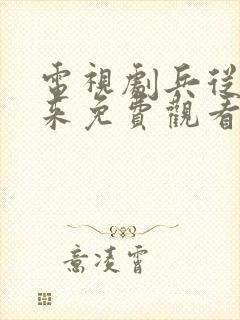 電視劇兵從
來免費觀看
意凌霄